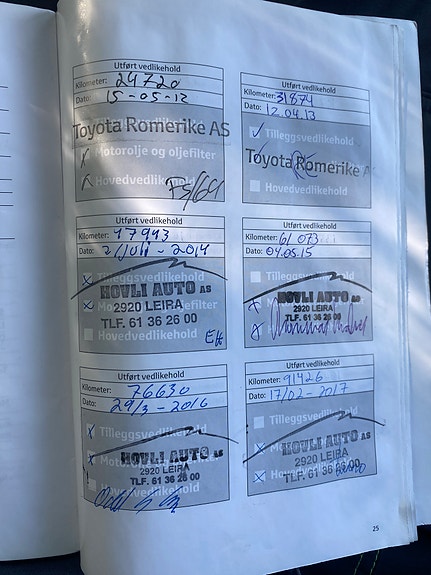 Utført vedlikehold
Kilometer: 24720
Dato: 15-05-12
Toyota Romerike AS
Motorolje og oljefilter
Hovedvedlikehold
Utført vedlikehold
Kilometer: 31874
Dato: 12.04.13
Tilleggsvedlikehold
Toyota Romerike A
Hovedvedlikehold
Utført vedlikehold
Kilometer: 47943
Dato: 2/Juli - 2014
Tilleggsvedlikehold
HOVLI AUTO AS
2920 LEIRA
TLF. 61 36 26 00
Hovedvedlikehold
Utført vedlikehold
Kilometer: 61 073
Dato: 04.05.15
Tilleggsvedlikehold
HOVLI AUTO AS
2920 LEIRA
TLF. 61 36 26 00
Utført vedlikehold
Kilometer: 76630
Dato: 29/3-2016
Tilleggsvedlikehold
HOVLI AUTO AS
2920 LEIRA
TLF. 61 36 26 00
Utført vedlikehold
Kilometer: 91426
Dato: 17/02-2017
Tilleggsvedlikehold
HOVLI AUTO AS
2920 LEIRA
TLF. 61 36 26 00
25